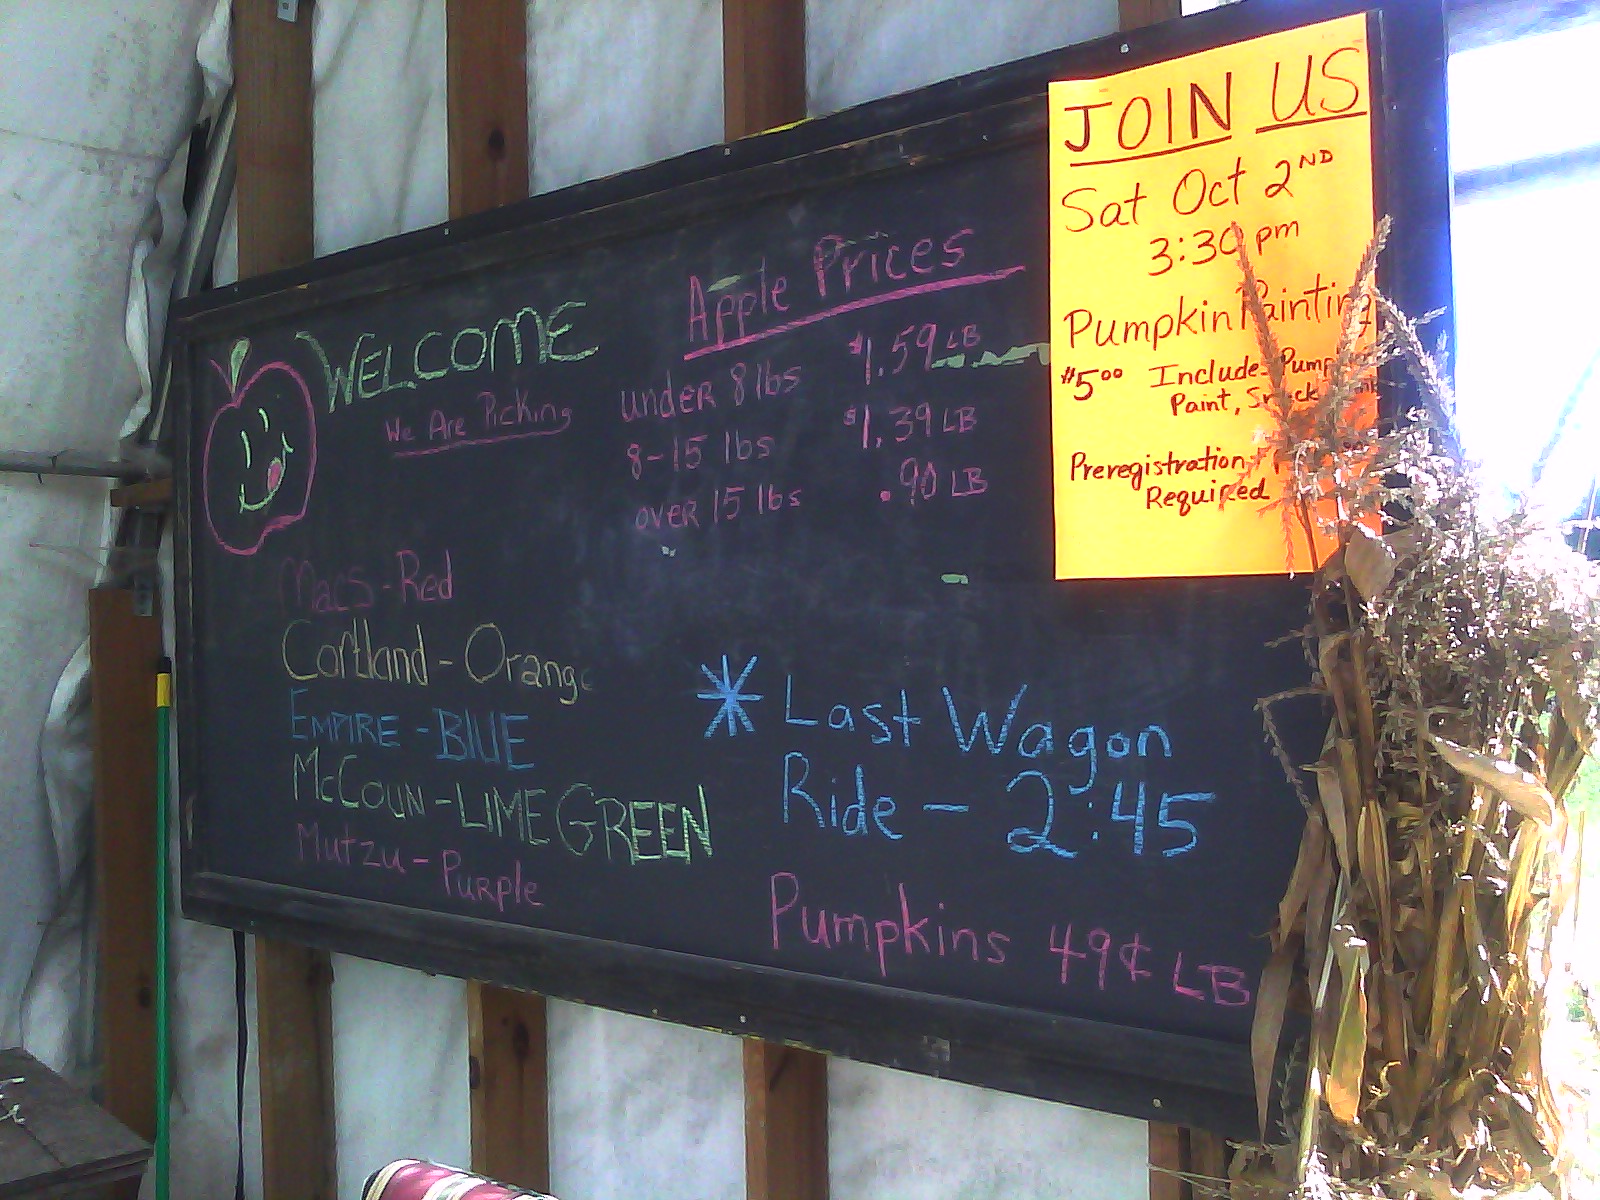 WELCOME
We Are Picking
Apple Prices
under 8 lbs $1.59 LB
8-15 lbs $1.39 LB
over 15 lbs .90 LB
Macs - Red
Cortland - Orange
EMPIRE - BLUE
McCOUN - LIME GREEN
Mutzu - Purple
* Last Wagon
Ride - 2:45
Pumpkins 49¢ LB
JOIN US
Sat Oct 2ND
3:30 pm
Pumpkin Painting
$5.00 Include
Paint,
Preregistration
Required